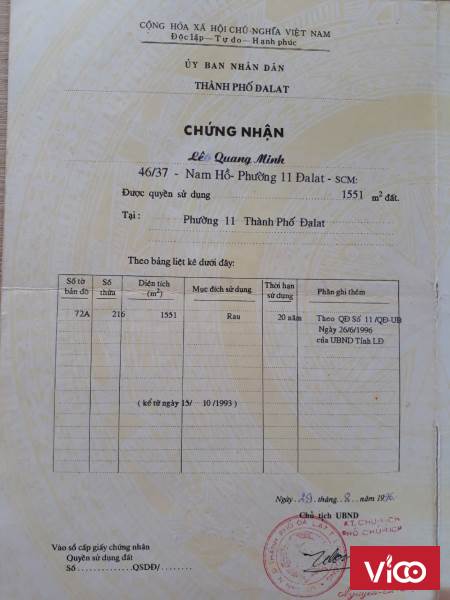 CỘNG HÒA XÃ HỘI CHỦ NGHĨA VIỆT NAM
Độc lập — Tự do — Hạnh phúc
ỦY BAN NHÂN DÂN
THÀNH PHỐ ĐALAT
CHỨNG NHẬN
Lê Quang Minh
46/37 - Nam Hồ- Phường 11 Đalat - SCM:
Được quyền sử dụng 1551 m² đất.
Tại : Phường 11 Thành Phố Đalat
Theo bảng liệt kê dưới đây:
Số tờ bản đồ Số thửa Diện tích (m²) Mục đích sử dụng Thời hạn sử dụng Phần ghi thêm
72A 216 1551 Rau 20 năm Theo QĐ Số 11/QĐ-UB
Ngày 26/6/1996
của UBND Tỉnh LĐ
( kể từ ngày 15/ 10 /1993 )
Ngày 29 tháng 8 năm 1996
Chủ tịch UBND
KT. CHỦ TỊCH
PHÓ CHỦ TỊCH
Vào sổ cấp giấy chứng nhận
Quyền sử dụng đất
Số ........ QSDĐ/ ........
Vico